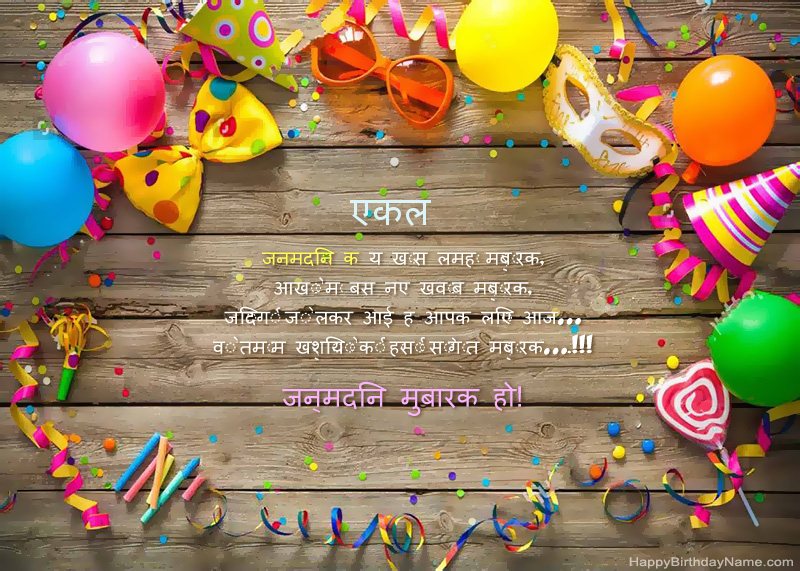 एकल
जनमदिन क य खास लमहा मबारक,
आखों में बस नए खवाब मबारक,
जिदगी जो लेकर आई ह आपक लिए आज...
वो तमाम खशियों की हसी सौगात मबारक....!!!
जन्मदिन मुबारक हो!
HappyBirthdayName.com